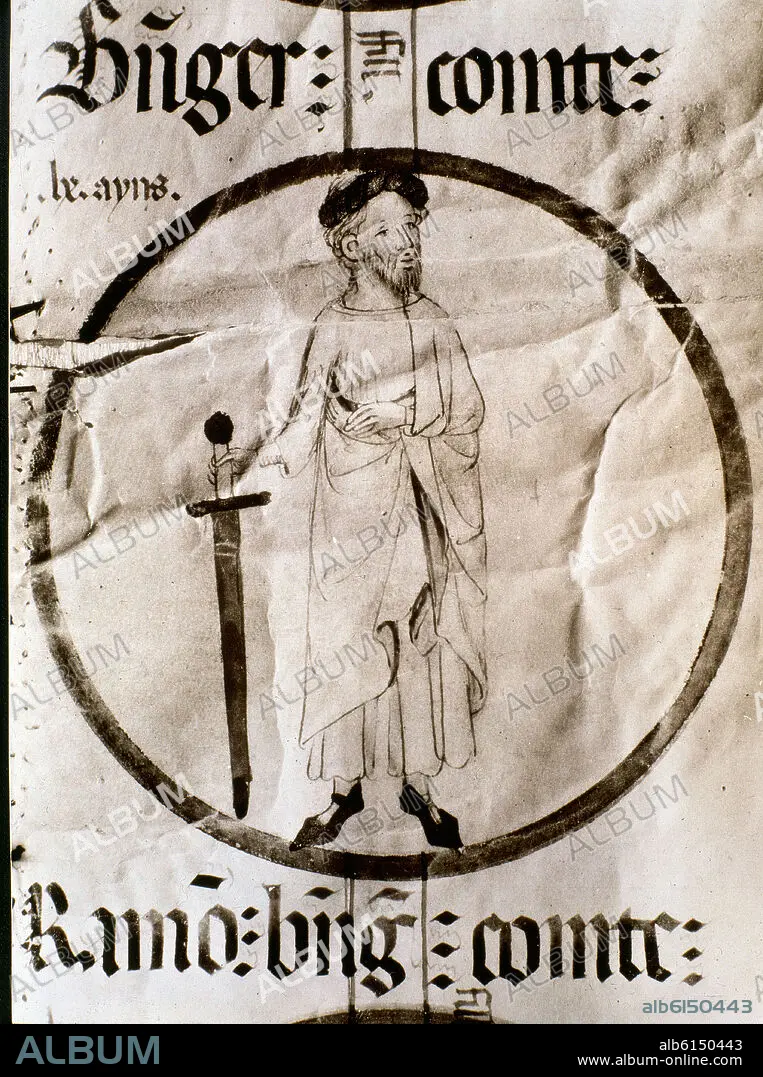 Bn̄ger: fill comte:
.le.ayns.
Ramō: bn̄ḡ: comte:
fill
alb6150443
ALBUM
alb6150443
www.album-online.com